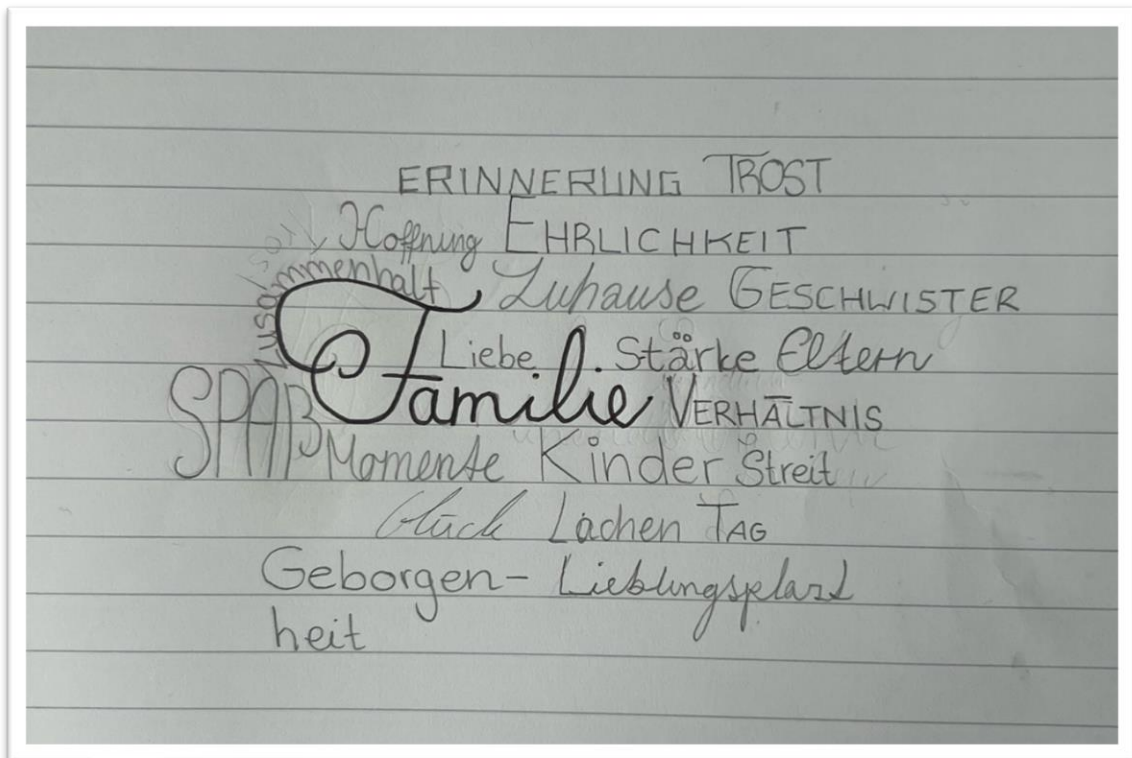 ERINNERUNG TROST
Hoffnung EHRLICHKEIT
Zusammenhalt Zuhause GESCHWISTER
Liebe Stärke Eltern
SPAß Familie VERHÄLTNIS
Momente Kinder Streit
Glück Lachen TAG
Geborgen- Lieblingsplatz
heit